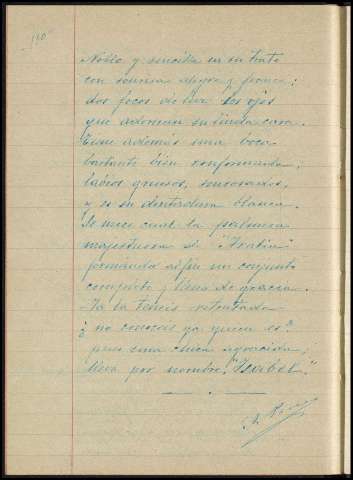 110
Noble y sencilla en su trato
con sonrisa alegre y franca;
dos focos de luz los ojos
que adornan su linda cara.
Tiene además una boca
bastante bien conformada;
labios gruesos, sonrosados,
y es su dentadura blanca.
Se mece cual la palmera
majestuosa de "Arabia"
formando al fin un conjunto
completo y lleno de gracia.
Ya la teneis retratada
¿no conoceis ya quien es?
pues una chica agraciada;
lleva por nombre, "Isabel."